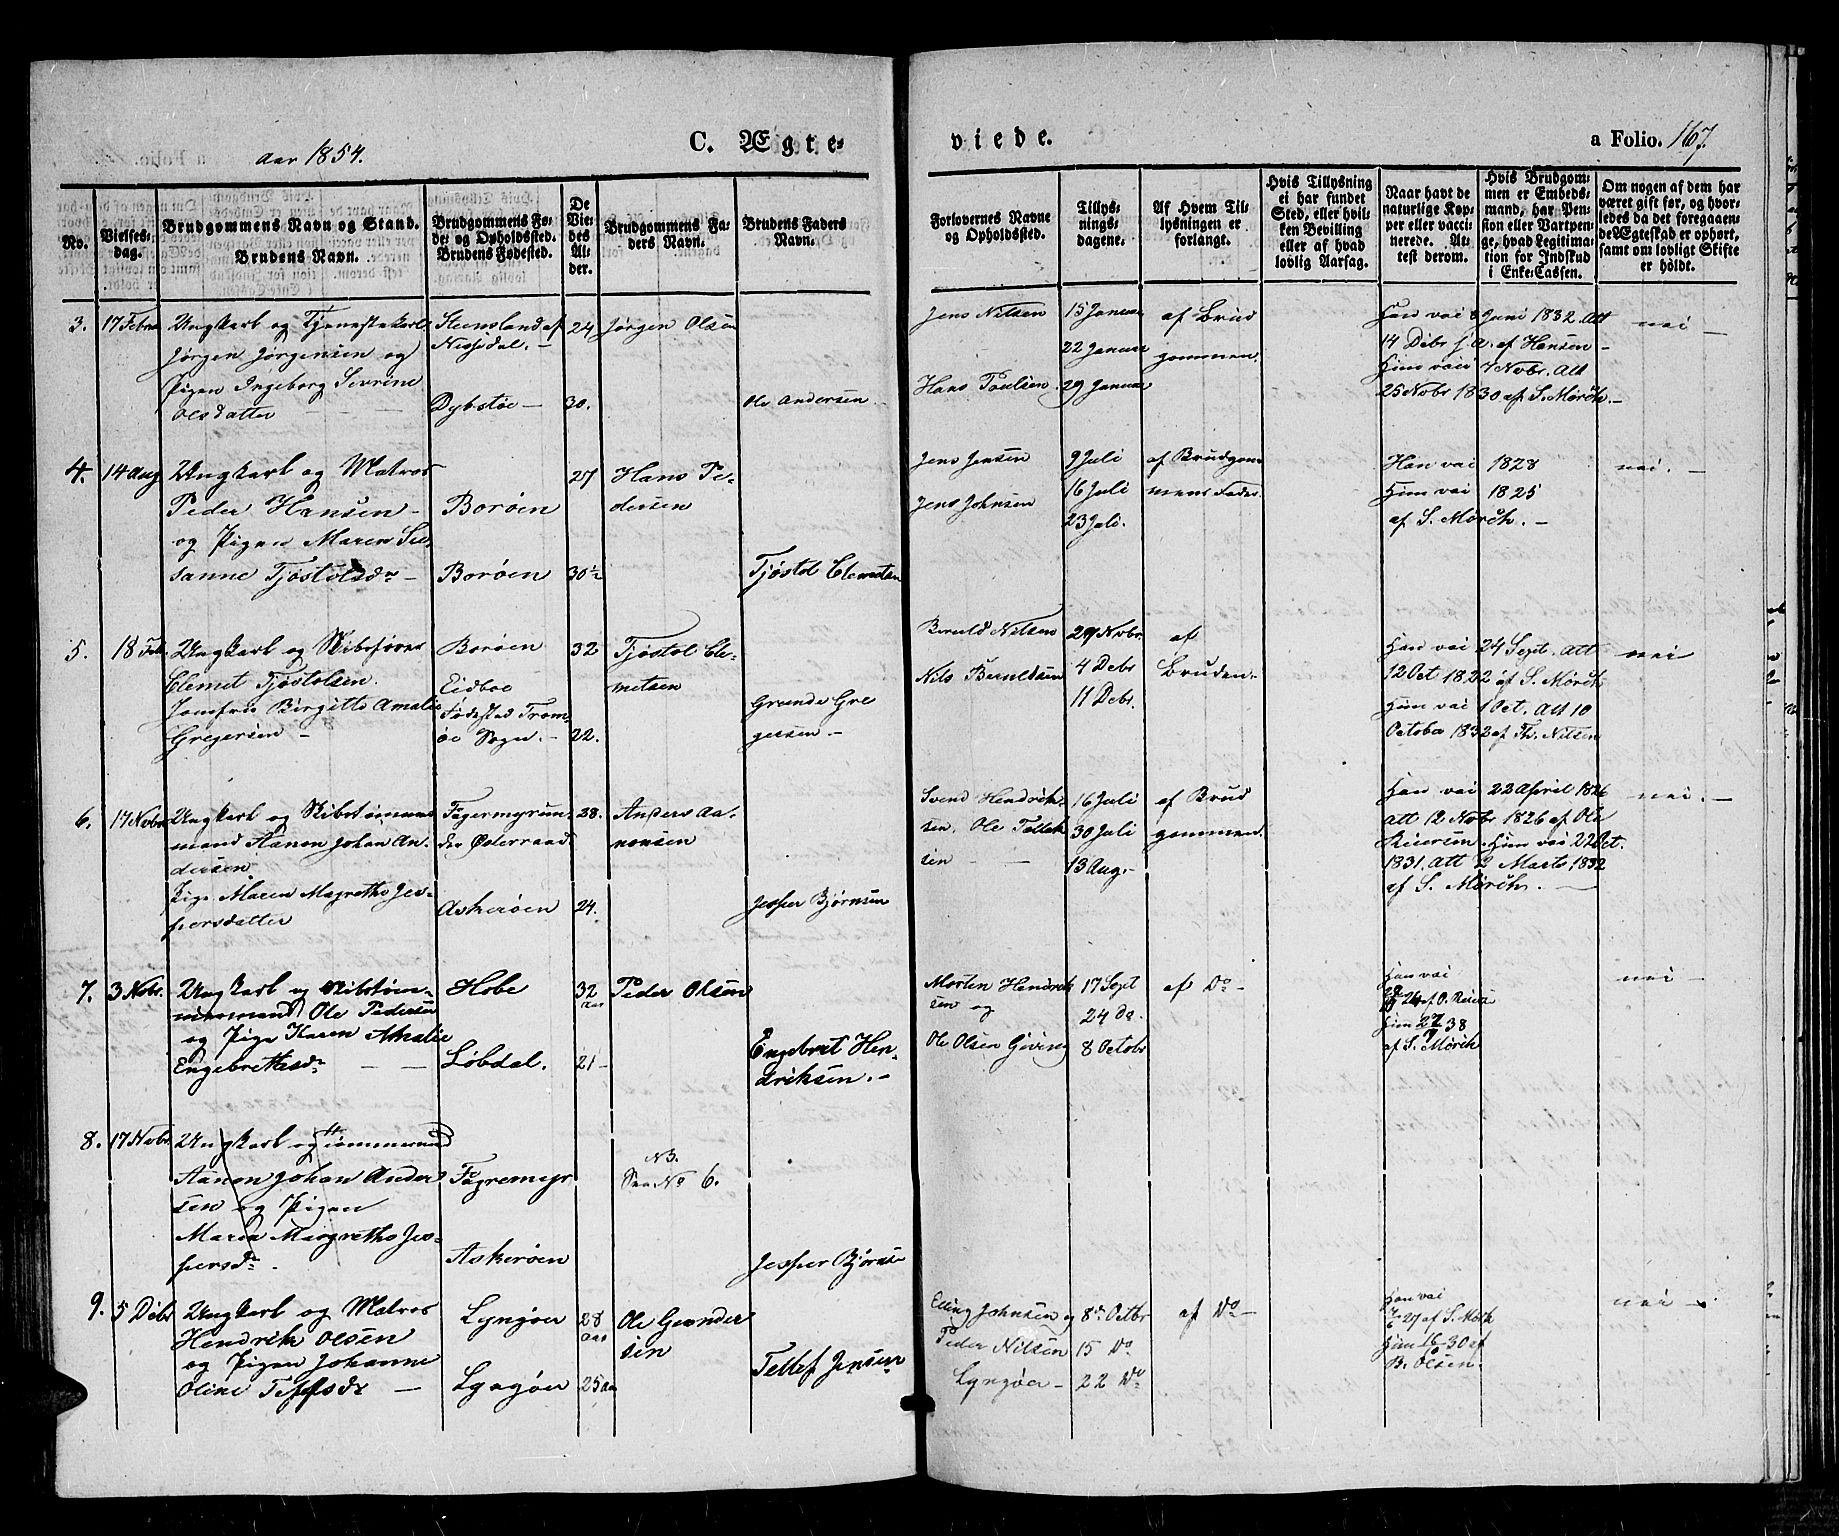 Aar 1854.
C. Ægte-
viede.
a Folio. 167.
No.
Vielses-
dag.
Brudgommens Navn og Stand.
Brudens Navn.
Brudgommens Fø-
de- og Opholdssted.
Brudens Fødested.
De
Vie-
des
Al-
der.
Brudgommens Fa-
ders Navn.
Brudens Faders
Navn.
Forlovernes Navne
og Opholdssted.
Tillys-
nings-
dagene.
Af Hvem Til-
lysningen er
forlangt.
Hvis Tillysning
ei har fundet
Sted, eller hvil-
ken Bevilling
eller af hvad
lovlig Aarsag.
Naar havt de
naturlige Kop-
per eller vacci-
nerede. At-
test derom.
Hvis Brudgom-
men er Embeds-
mand, har Pen-
sion eller Vartpen-
ge, hvad Legitima-
tion for Indskud
i Enke-Cassen.
Om nogen af dem har
været gift før, og hvor-
ledes da det foregaaen-
de Ægteskab er ophørt,
samt om lovligt Skifte
er holdt.
3. 17 Febr
Ungkarl og Tjenestekarl
Jørgen Jørgensen og
Pigen Ingeborg Sevrine
Olsdatter
Steensland af
Nissedal. —
Dybstøe —
24
30.
Jørgen Olsen
Ole Andersen
Jens Nilsen
Hans Poulsen.
15 Januar
22 Januar
29 Januar
af Brud
gommen.
Han vai 8 Juni 1832. Att
14 Debr s. a. af Hansen —
Hun vai 4 Nobr. Att
25 Nobr 1830 af S. Mørch. —
nei —
4. 14 Aug
Ungkarl og Matros
Peder Hansen —
og Pigen Maren Su-
sanne Tjøstolsdr —
Borøen
Borøen
27
30½
Hans Pe-
dersen
Tjøstol Clemetsen
Jens Jensen
Jens Johnsen
9 Juli
16 Juli
23 Juli.
af Brudgom
mens Fader.
Han vai 1828
Hun vai 1825
af S. Mørch. —
nei. —
5. 18 Feb.
Ungkarl og Skibsfører
Clemet Tjøstolsen.
Jomfru Birgitte Amalie
Gregersen —
Borøen
Eidboe
Fødested Trom-
øe Sogn. —
32
22.
Tjøstol Cle-
metsen
Grunde Gre
gersen —
Beruld Nilsen
Nils Beruldsen
29 Nobr
4 Debr
11 Debr.
af
Bruden.
Han vai 24 Sept. Att
12 Oct 1822 af S. Mørch
Hun vai 1 Oct. Att 10
October 1832 af Th. Nilsen
nei
6. 17 Nobr
Ungkarl og Skibstømmer
mand Aanon Johan An-
dersen.
Pige Maren Magrethe Jes-
persdatter
Fagermyr un-
der Østeraad
Askerøen
28.
24.
Anders Aa-
nonsen
Jesper Bjørnsen
Svend Hendrik-
sen, Ole Tellef
sen —
16 Juli
30 Juli
13 Aug. —
af Brud
gommen.
Han vai 22 April 1826
Att 12 Nobr 1826 af Ole
Reiersen. Hun vai 22 Oct.
1831. Att 2 Marts 1832
af S. Mørch. —
nei. —
7. 3 Nobr.
Ungkarl og Skibstøm-
mermand Ole Pedersen
og Pige Karen Amalie
Engebretsdr — —
Hobe
Løbdal.
32
Aar
21 —
Peder Olsen
Engebret Hen-
driksen. —
Morten Hendrik
sen og
Ole Olsen Giving
17 Sept
24 do.
8 Octobr
af Do —
Han vai
26 af O. Reier
Hun 27/9 38
af S. Mørch
nei —
8. 17 Nobr
Ungkarl og Tømmermd
Aanon Johan Ander
sen og Pigen
Maren Margrethe Jes-
persdr.
Fagremyr
Askerøen
NB.
See No 6.
Jesper Bjørnse
9. 5 Debr
Ungkarl og Matros
Hendrik Olsen
og Pigen Johanne
Oline Tellefsdr —
Lyngør
Lyngør
28
Aar
25 Aar
Ole Gunder
sen
Tellef Jensen
Elling Johnsen og
Peder Nilsen
Lyngør —
8de Octbr
15 Do
22 Do
af Do —
Han vai
27 af S. Mørch
Hun 16 30 af
B. Olsen.
nei —